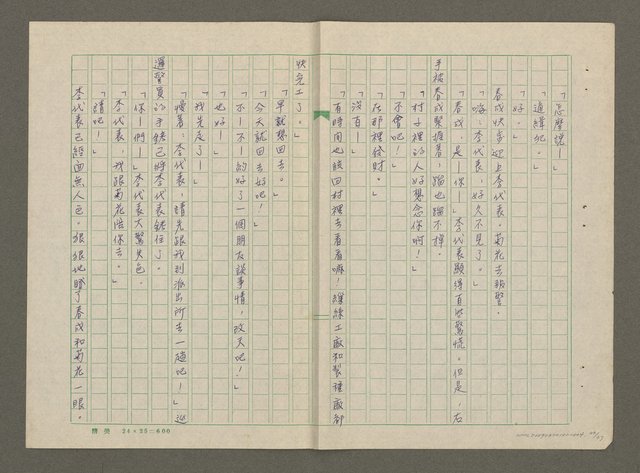 「怎麼說—」
「追緝犯。」
「好。」
春成快步迎上李代表。菊花去報警。
「嗨、李代表、好久不見了。」
「春成、是—你—」李代表顯得有些驚慌。但是、右
手被春成緊握着、蹓也蹓不掉。
「村子裡的人好想念你啊！」
「不會吧！」
「在那裡發財。」
「沒有—」
「有時間也該回村裡去看看嘛！纖綠工廠和製罐廠都
快完工了。」
「早就想回去。」
「今天就回去好吧！」
「不！不—的好了一個朋友談事情，改天吧！」
「也好！」
「我先走了—」
「慢着、李代表、請先跟我到派出所去一趟吧！」巡
邏警員的手銬已將李代表銬住了。
「你—們—」李代表大驚失色。
「李代表、我跟菊花陪你去。」
「請吧！」
李代表已經面無人色。狠狠地瞪了春成和菊花一眼。
24×25=600